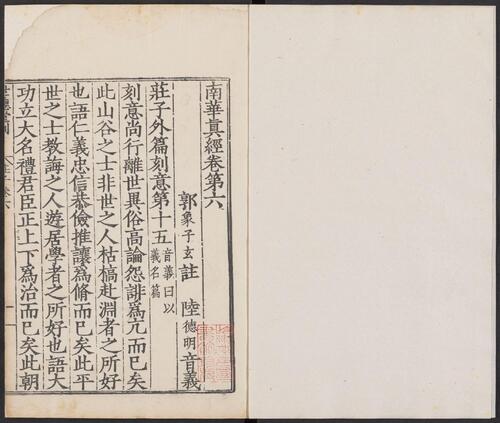 南華真經卷第六
郭象子玄註 陸德明音義
莊子外篇刻意第十五音義曰以義名篇
刻意尚行離世異俗高論怨誹爲亢而已矣
此山谷之士非世之人枯槁赴淵者之所好
也語仁義忠信恭儉推讓爲脩而已矣此平
世之士教誨之人遊居學者之所好也語大
功立大名禮君臣正上下爲治而已矣此朝